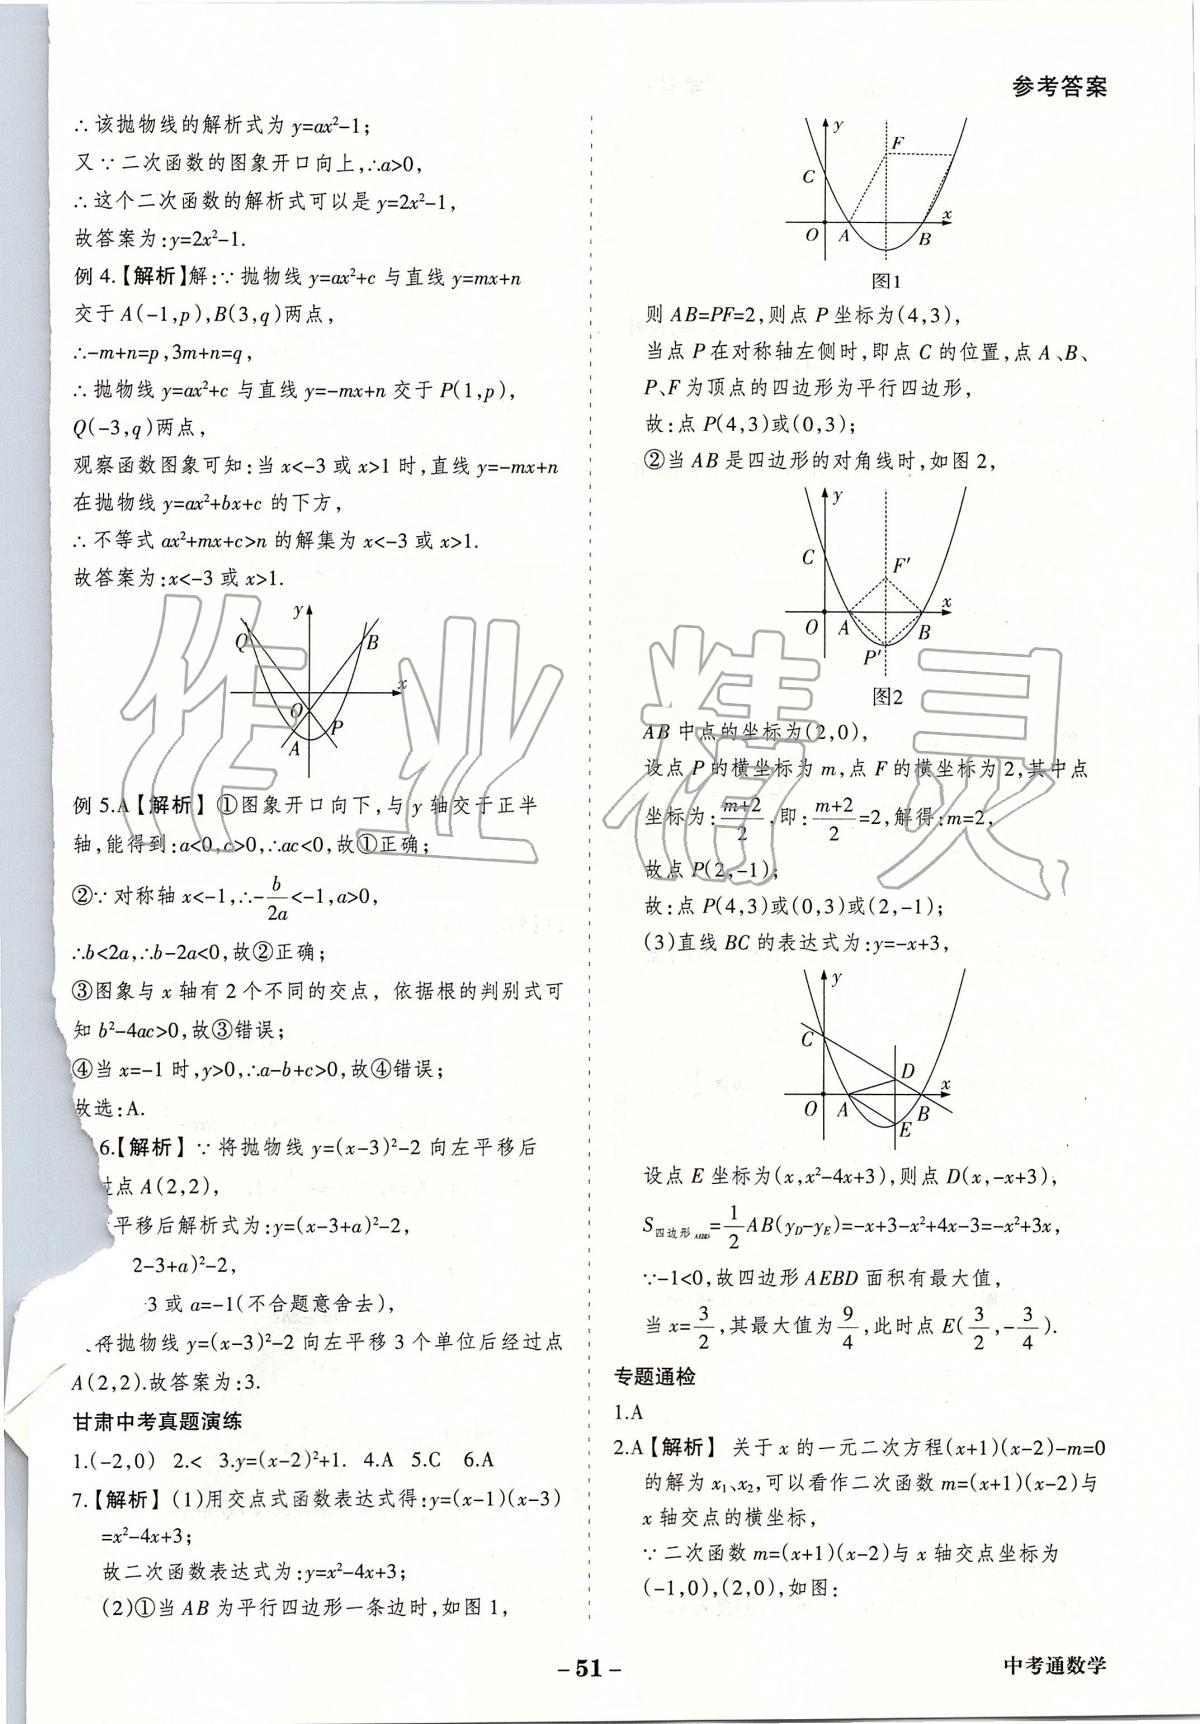 参考答案
∴该抛物线的解析式为y=ax²-1;
又∵二次函数的图象开口向上,∴a>0,
∴这个二次函数的解析式可以是y=2x²-1,
故答案为:y=2x²-1.
例4.【解析】解:∵抛物线y=ax²+c与直线y=mx+n
交于A(-1,p),B(3,q)两点,
∴-m+n=p,3m+n=q,
∴抛物线y=ax²+c与直线y=-mx+n交于P(1,p),
Q(-3,q)两点,
观察函数图象可知:当x<-3或x>1时,直线y=-mx+n
在抛物线y=ax²+bx+c的下方,
∴不等式ax²+mx+c>n的解集为x<-3或x>1.
故答案为:x<-3或x>1.
y
Q
B
x
O
P
A
例5.A【解析】①图象开口向下,与y轴交于正半
轴,能得到:a<0,c>0,∴ac<0,故①正确;
②∵对称轴x<-1,∴-b/2a<-1,a>0,
∴b<2a,∴b-2a<0,故②正确;
③图象与x轴有2个不同的交点,依据根的判别式可
知b²-4ac>0,故③错误;
④当x=-1时,y>0,∴a-b+c>0,故④错误;
故选:A.
6.【解析】∵将抛物线y=(x-3)²-2向左平移后
过点A(2,2),
平移后解析式为:y=(x-3+a)²-2,
2-3+a)²-2,
3或a=-1(不合题意舍去),
将抛物线y=(x-3)²-2向左平移3个单位后经过点
A(2,2).故答案为:3.
甘肃中考真题演练
1.(-2,0) 2.< 3.y=(x-2)²+1. 4.A 5.C 6.A
7.【解析】(1)用交点式函数表达式得:y=(x-1)(x-3)
=x²-4x+3;
故二次函数表达式为:y=x²-4x+3;
(2)①当AB为平行四边形一条边时,如图1,
y
F
C
x
O A B
图1
则AB=PF=2,则点P坐标为(4,3),
当点P在对称轴左侧时,即点C的位置,点A、B、
P、F为顶点的四边形为平行四边形,
故:点P(4,3)或(0,3);
②当AB是四边形的对角线时,如图2,
y
C
F'
x
O A B
P'
图2
AB中点的坐标为(2,0),
设点P的横坐标为m,点F的横坐标为2,其中点
坐标为:(m+2)/2,即:(m+2)/2=2,解得:m=2,
故点P(2,-1);
故:点P(4,3)或(0,3)或(2,-1);
(3)直线BC的表达式为:y=-x+3,
y
C
D
x
O A B
E
设点E坐标为(x,x²-4x+3),则点D(x,-x+3),
S四边形AEBD=1/2AB(yD-yE)=-x+3-x²+4x-3=-x²+3x,
∵-1<0,故四边形AEBD面积有最大值,
当x=3/2,其最大值为9/4,此时点E(3/2,-3/4).
专题通检
1.A
2.A【解析】 关于x的一元二次方程(x+1)(x-2)-m=0
的解为x₁、x₂,可以看作二次函数m=(x+1)(x-2)与
x轴交点的横坐标,
∵二次函数m=(x+1)(x-2)与x轴交点坐标为
(-1,0),(2,0),如图:
作业精灵
-51-
中考通数学